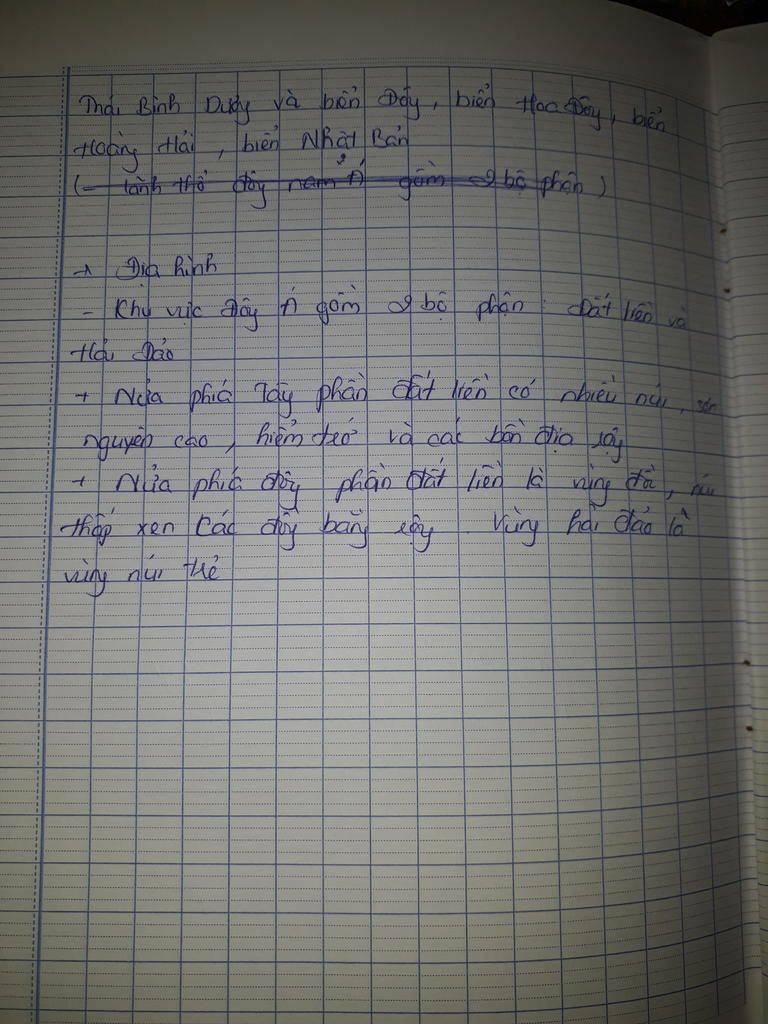 Thái Bình Dương và biển Đông, biển Hoa Đông, biển
Hoàng Hải, biển Nhật Bản
(- lãnh thổ đông nam Á gồm 2 bộ phận)
+ Địa hình
- Khu vực Đông Á gồm 2 bộ phận: Đất liền và
Hải Đảo
+ Nửa phiá Tây phần đất liền có nhiều núi, sơn
nguyên cao, hiểm và các bồn địa rộng
+ Nửa phiá đông phần đất liền là vùng đồi, núi
thấp xen các đồng bằng rộng. Vùng hải đảo là
vùng núi trẻ